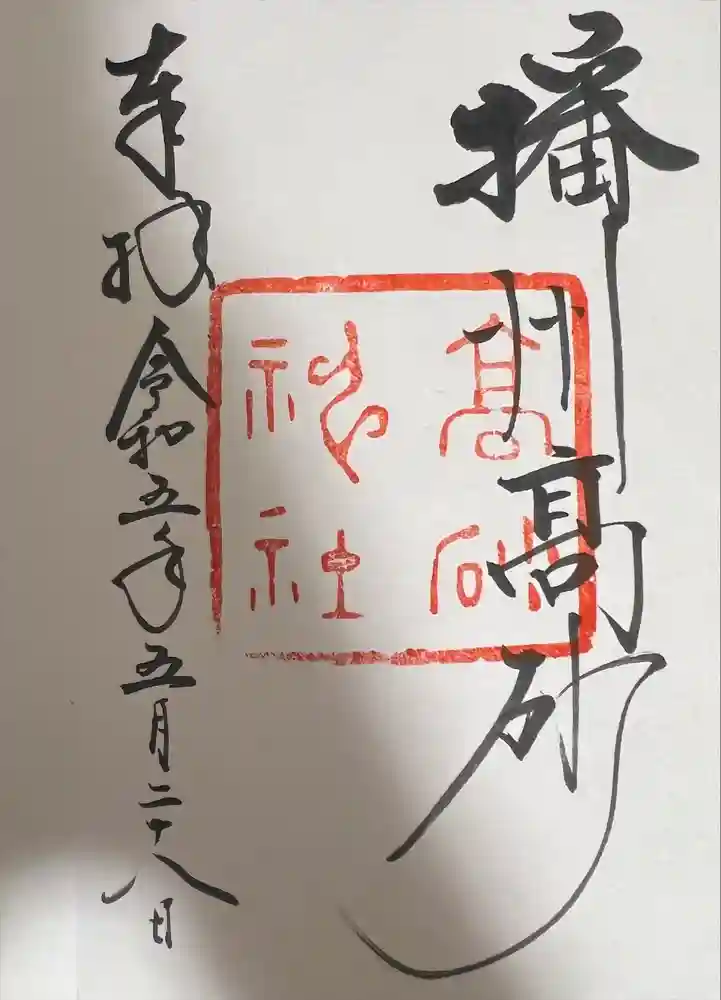 播州高砂
高砂
神社
奉拝 令和五年五月二十八日